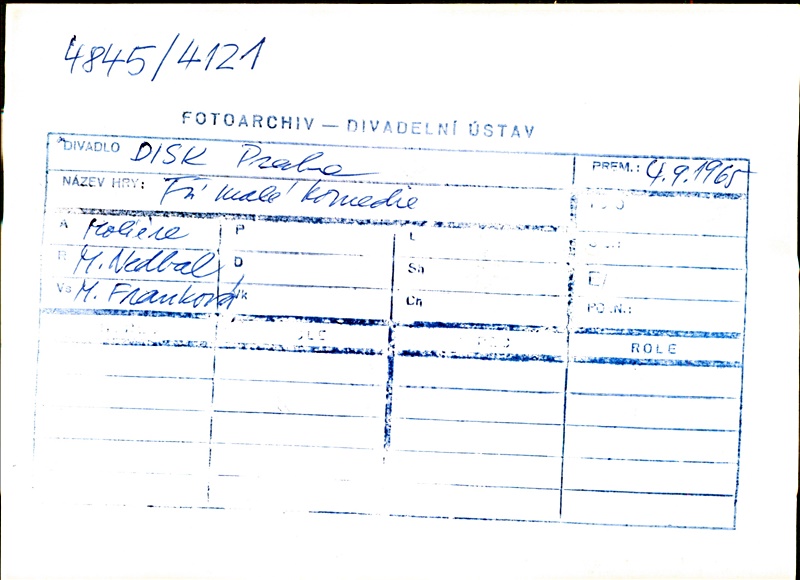 4845/4121
FOTOARCHIV — DIVADELNÍ ÚSTAV
DIVADLO DISK Praha PREM.: 4.9.1965
NÁZEV HRY: Tři malé komedie
A Molière P L
R M. Nedbal D Sh
Vs M. Franková Ch
ROLE